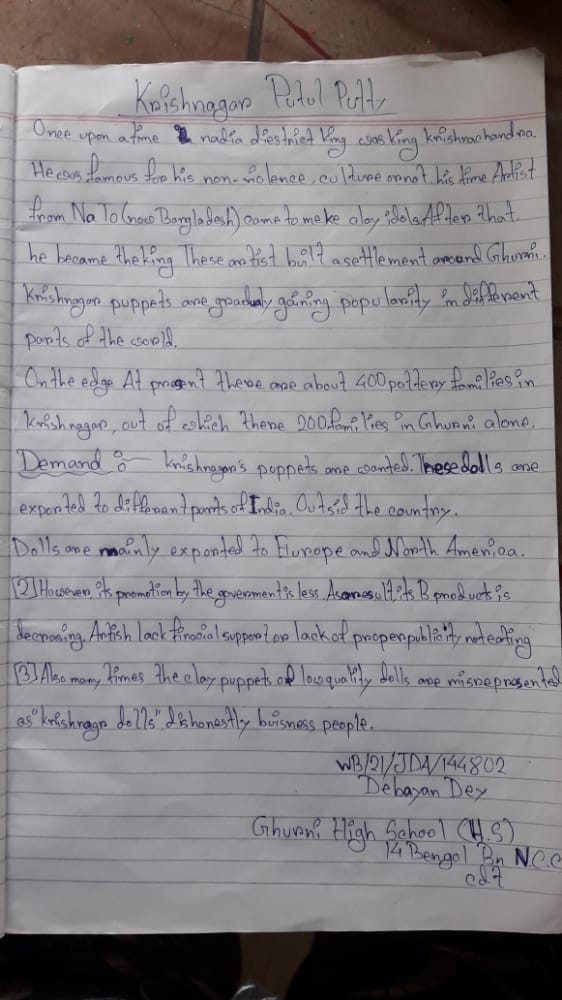 Krishnagar Putul Putty
Once upon a time nadia diestrict king was king krishnachandra.
He was famous for his non-violence, culture ornot. his time Artist
from NaTo (now Bangladesh) came to meke clay idols. After that.
he became the king These artist built a settlement around Ghurni.
Krishnagar puppets are gradualy gaining popularity in different
parts of the world.
On the edge At present there are about 400 pottery families in
Krishnagar, out of which there 200 families in Ghurni alone.
Demand :- krishnagar's puppets are wanted. These dolls are
exported to different parts of India. Outsid the country.
Dolls are mainly exported to Europe and North America.
[2] However, its promotion by the government is less. As a result its B products is
decrasing. Artish lack finacial support or lack of proper publicity noteating
[3] Also many times the clay puppets of low quality dolls are misrepresented
as "krishnagr dolls" dishonestly buisness people.
WB/21/JDA/144802
Debayan Dey
Ghurni High School (H.S)
14 Bengol Bn N.C.C
cdt